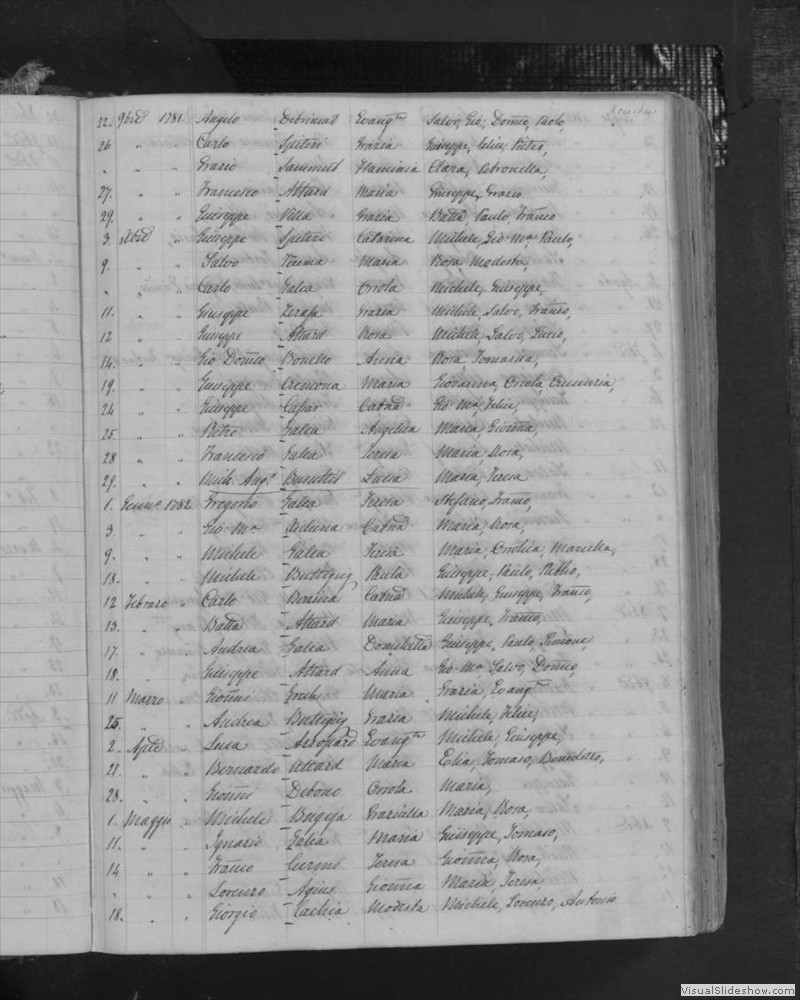 22. 9bre 1781. Angelo Debrincat Evangta Salvo, Gio: Domco, Paolo,
26 " " Carlo Spiteri Grazia Giuseppe, Felice, Pietro,
" " " Grazio Sammut Flaminia Clara, Petronella,
27. " " Francesco Attard Maria Giuseppe, Grazio
29. " " Giuseppe Vella Grazia Batta Paulo, Franco
3. Xbre " Giuseppe Spiteri Catarina Michele, Gio Ma Paulo,
9. " " Salvo Maria Rosa, Modesta,
" " " Carlo Galea Orsola Michele, Giuseppe,
11. " " Giuseppe Zerafa Grazia Michele, Salvo, Franco,
12 " " Giuseppe Attard Rosa Michele, Salvo, Lucio,
14. " " Gio Domco Bonello Anna Rosa, Tomasina,
19. " " Giuseppe Cremona Maria Giovanna, Orsola,
24 " " Giuseppe Casar Catna Gio Ma, Felice,
25. " " Pietro Galea Angelica Maria, Gionna,
28 " " Francesco Galea Teresa Maria, Rosa,
29. " " Mich. Ang. Busuttil Lucia Maria, Teresa
1. Gennо 1782. Gregorio Galea Teresa Stefano, Franco,
3. " " Gio Ma Catna Maria, Rosa,
9. " " Michele Galea Teresa Maria, Marcella,
18. " " Michele Buttigig Paula Giuseppe, Paulo,
12 Febraro " Carlo Catna Michele, Giuseppe, Franco,
13. " " Batta Attard Maria Giuseppe, Franco,
17. " " Andrea Galea Giuseppe, Paulo, Simone,
18. " " Giuseppe Attard Anna Gio Ma, Salvo, Domco,
11 Marzo " Gionni Grech Maria Grazia, Evangta
25. " " Andrea Buttigig Grazia Michele, Felice,
2. Aple " Luca Evangta Michele, Giuseppe,
21. " " Bernardo Attard Maria Elia, Tomaso, Benedetto,
28. " " Gionni Debono Orsola Maria,
1. Maggio " Michele Bugeja Graziulla Maria, Rosa,
11. " " Ignazio Galea Maria Giuseppe, Tomaso,
14 " " Franco Curmi Teresa Gionna, Rosa,
" " " Lorenzo Agius Gionna Maria, Teresa,
18. " " Giorgio Cachia Modesta Michele, Lorenzo, Antonio
VisualSlideshow.com